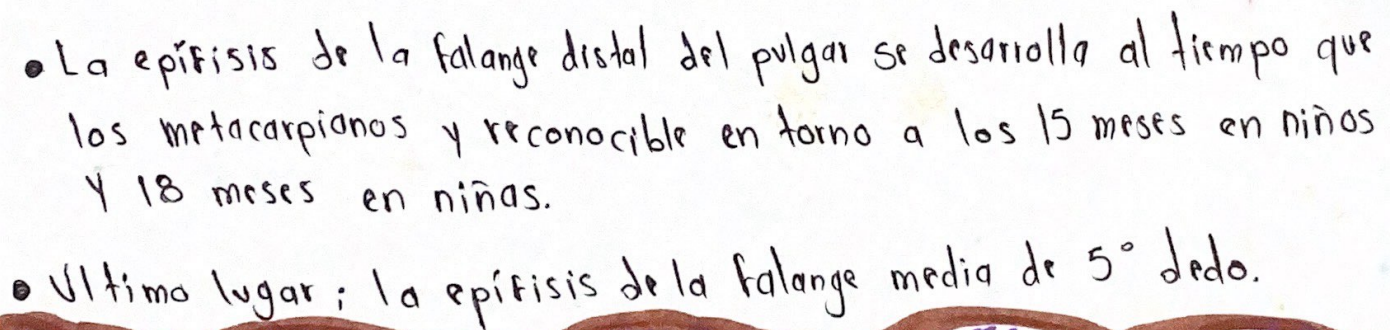 • La epífisis de la falange distal del pulgar se desarrolla al tiempo que
los metacarpianos y reconocible en torno a los 15 meses en niños
y 18 meses en niñas.
• Ultimo lugar; la epífisis de la falange media de 5° dedo.